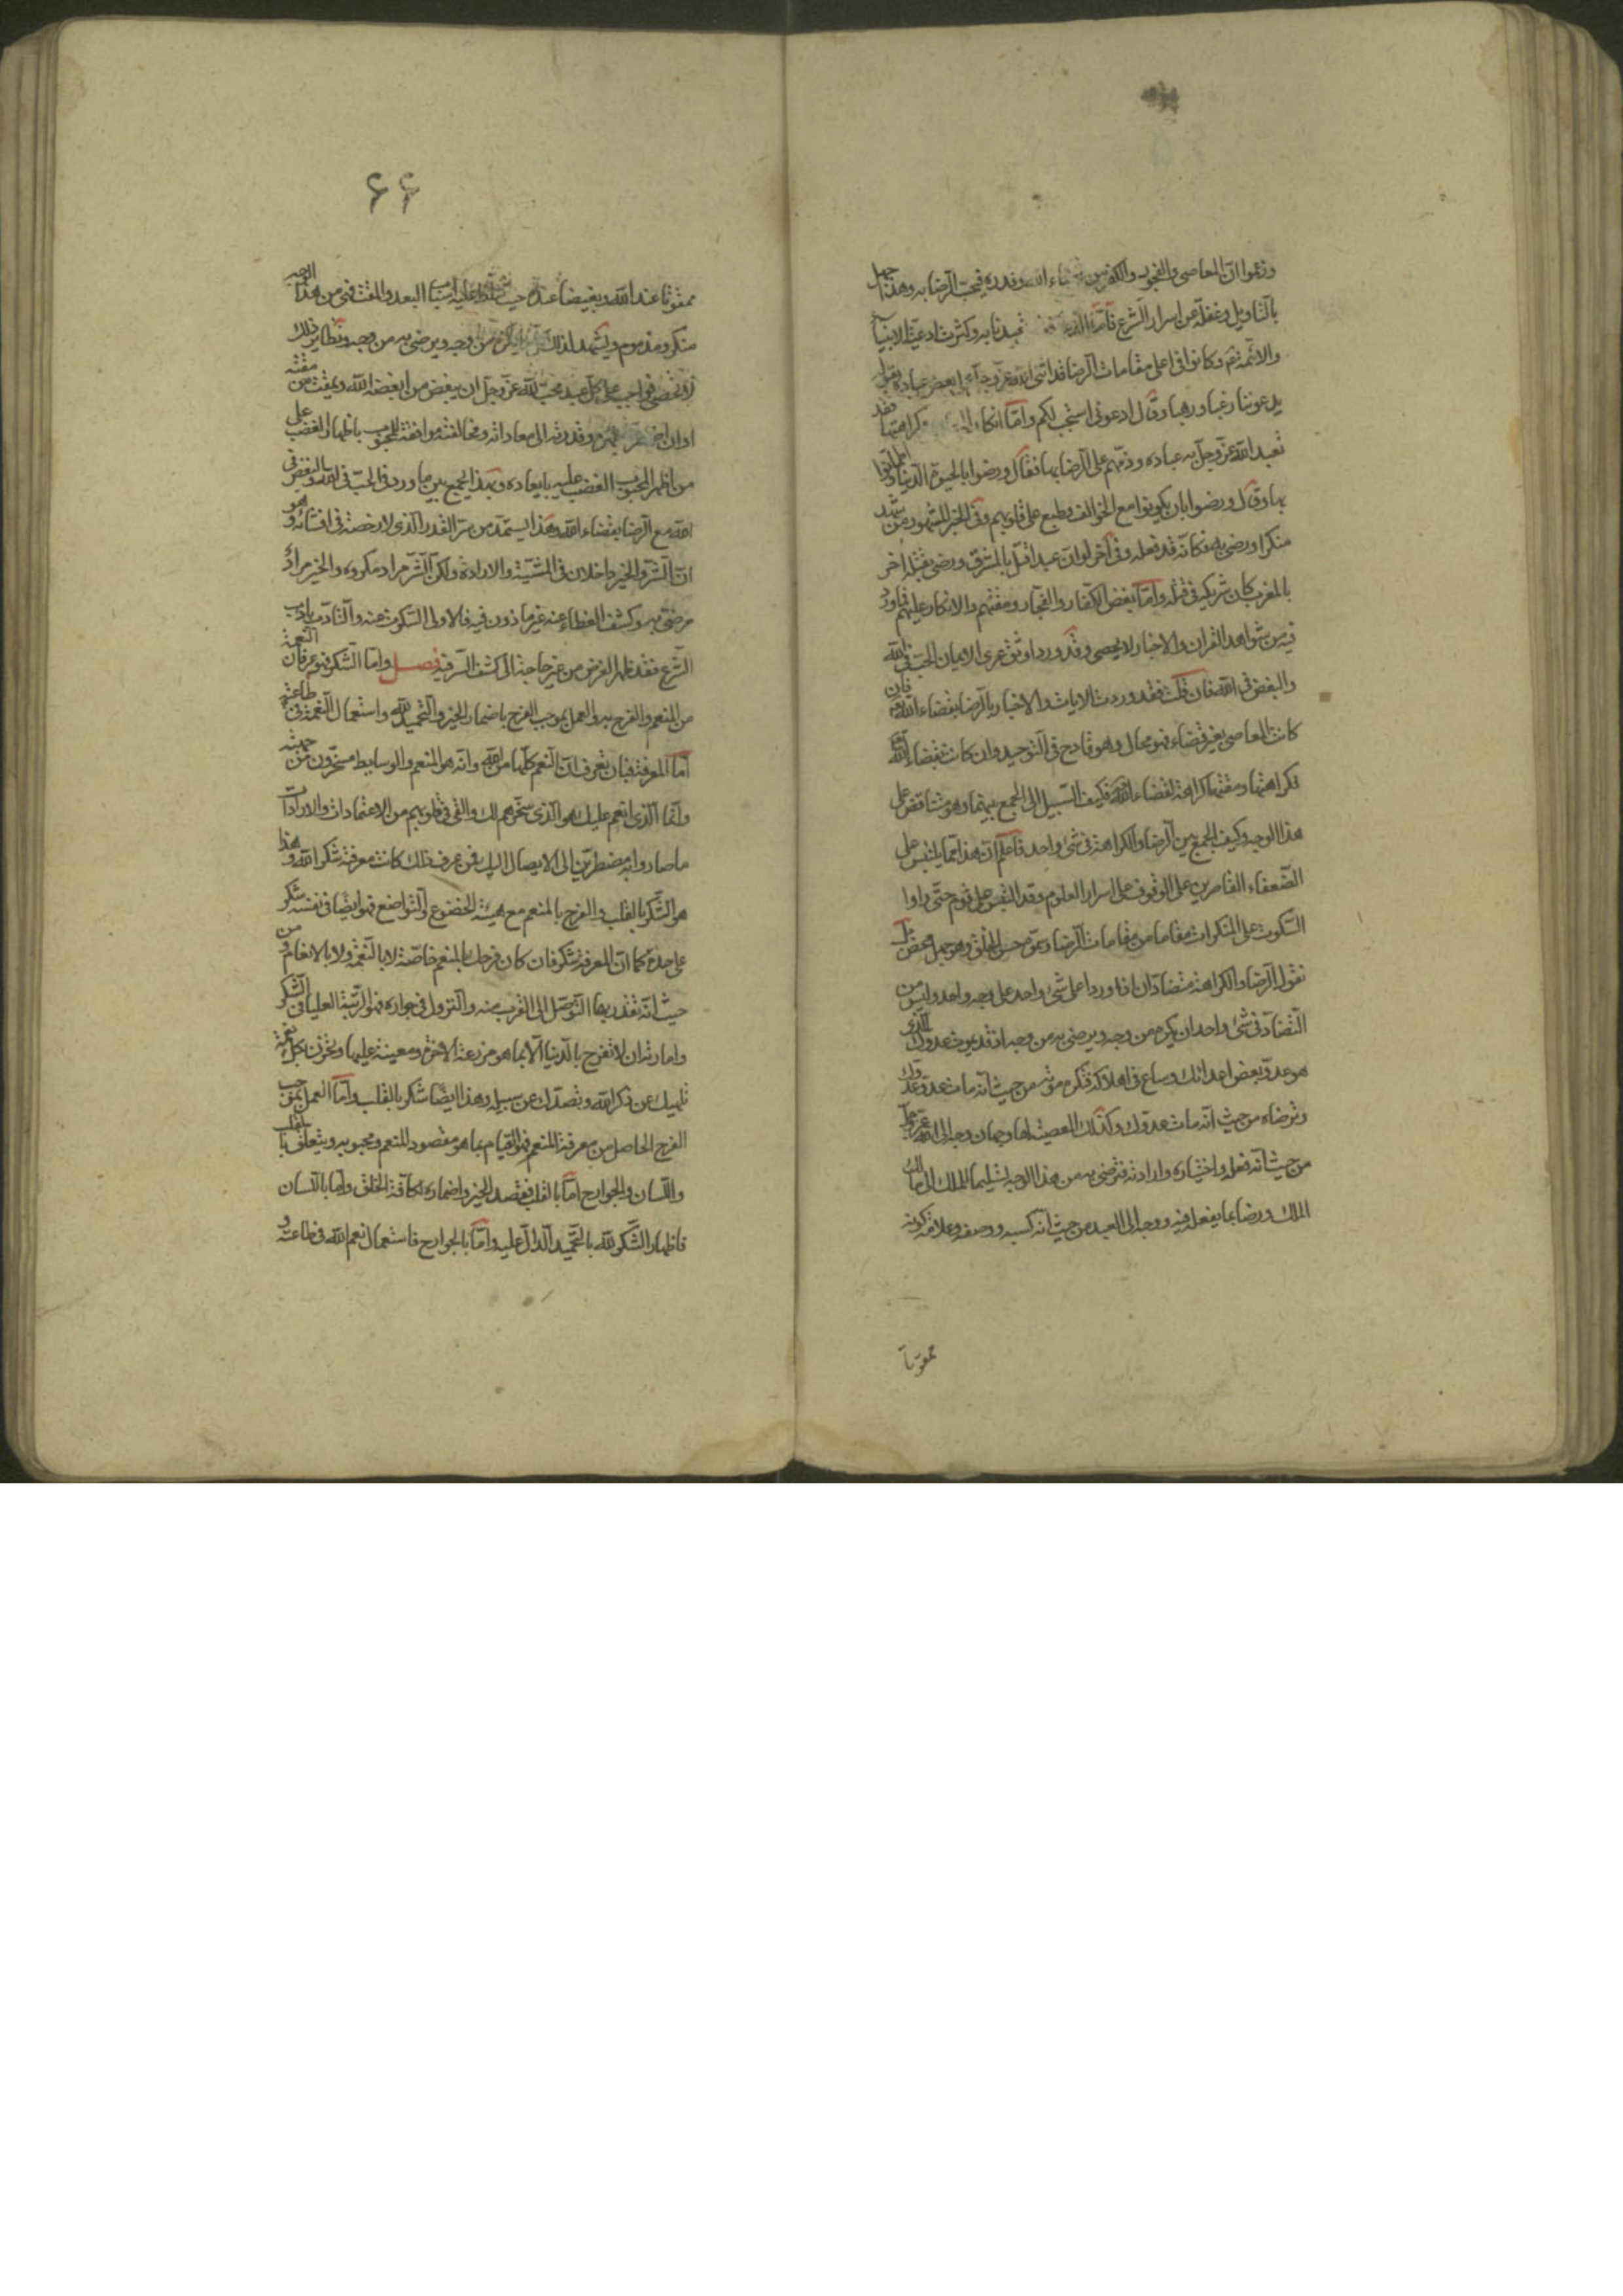 وزعموا ان المعاصي والفجور والكفر من قضاء الله وقدره فيجب الرضا به وهذا جهل
بالتاويل وغفلة عن اسرار الشرع فاما الدعاء فقد تعبدنا به وكثرت ادعية الانبياء
والائمة وكانوا في اعلى مقامات الرضا وقد اثنى الله عز وجل على بعض عباده بقوله
يدعوننا رغبا ورهبا وقال ادعوني استجب لكم واما انكار المعاصي وكراهتها فقد
تعبد الله عز وجل به عباده وذمهم على الرضا بها فقال ورضوا بالحيوة الدنيا واطمأنوا
بها وقال ورضوا بان يكونوا مع الخوالف وطبع على قلوبهم وفي الخبر المشهور من شهد
منكرا ورضي به فكانه قد فعله وفي اخر لو ان عبدا قتل بالمشرق ورضي بقتله اخر
بالمغرب كان شريكه في قتله واما بغض الكفار والفجار ومقتهم والانكار عليهم فما ورد
فيه من شواهد القران والاخبار لا يحصى وقد ورد اوثق عرى الايمان الحب في الله
والبغض في الله فان قلت فقد وردت الايات والاخبار بالرضا بقضاء الله فان
كانت المعاصي بغير قضاء فهو محال وهو قادح في التوحيد وان كانت بقضاء الله
فكراهتها ومقتها كراهة لقضاء الله فكيف السبيل الى الجمع بينهما وهو متناقض على
هذا الوجه وكيف الجمع بين الرضا والكراهة في شيء واحد فاعلم ان هذا مما يلتبس على
الضعفاء القاصرين على الوقوف على اسرار العلوم وقد التبس على قوم حتى راوا
السكوت على المنكرات مقاما من مقامات الرضا وسموه حسن الخلق وهو جهل محض بل
نقول الرضا والكراهة متضادان اذا وردا على شيء واحد على وجه واحد وليس من
التضاد في شيء واحد ان يكره من وجه ويرضى به من وجه اذ قد يموت عدوك الذي
هو عدو بعض اعدائك وساع في اهلاكه فتكره موته من حيث انه مات عدو عدوك
وترضاه من حيث انه مات عدوك وكذلك المعصية لها وجهان وجه الى الله عز وجل
من حيث انه فعله واختياره وارادته فترضى به من هذا الوجه تسليما للملك الى مالك
الملك ورضا بما يفعله فيه ووجه الى العبد من حيث انه كسبه ووصفه وعلامة كونه
ممقوتا
۶۶
ممقوتا عند الله وبغيضا عنده حيث سلط عليه اسباب البعد والمقت فهي من هذا الوجه
منكر ومذموم ويشهد لذلك يكره من وجه ويرضى به من وجه ونظاير ذلك
لا تحصى فواجب على كل عبد محب لله عز وجل ان يبغض من ابغضه الله ويمقت من مقته
وان اضطره بقهره وقدرته الى معاداته ومخالفته موافقة للمحبوب باظهار الغضب على
من اظهر المحبوب الغضب عليه بابعاده وبهذا يجمع بين ما ورد في الحب في الله والبغض في
الله مع الرضا بقضاء الله وهذا يستمد من سر القدر الذي لا رخصة في افشائه وهو
ان الشر والخير داخلان في المشية والارادة ولكن الشر مراد مكروه والخير مراد
مرضي به وكشف الغطاء عنه غير ماذون فيه فالاولى السكوت عنه والتادب بادب
الشرع فقد ظهر الغرض من غير حاجة الى كشف السر فيه فصل واما الشكر فهو عرفان النعمة
من المنعم والفرح به والعمل بموجب الفرح باضمار الخير والتحميد لله واستعمال النعمة في طاعته
اما المعرفة فبان تعرف ان النعم كلها من الله وانه هو المنعم والوسايط مسخرون من جهته
وانما الذي انعم عليك هو الذي سخرهم لك والقى في قلوبهم من الاعتمادات والارادات
ما صاروا به مضطرين الى الايصال اليك فمن عرف ذلك كانت معرفته شكر الله وهذا
هو الشكر بالقلب والفرح بالمنعم مع هيئة الخضوع والتواضع فهو ايضا في نفسه شكر
على حدة كما ان المعرفة شكر فان كان فرحك بالمنعم خاصة لا بالنعمة ولا بالانعام ومن
حيث انه تقدر بها التوصل الى القرب منه والنزول في جواره فهو الرتبة العليا في الشكر
وامارته ان لا تفرح بالدنيا الا بما هو مزرعة الاخرة ومعينة عليها وتحزن بكل نعمة
تلهيك عن ذكر الله وتصدك عن سبيله وهذا ايضا شكر بالقلب واما العمل بموجب
الفرح الحاصل من معرفة المنعم فهو القيام بما هو مقصود المنعم ومحبوبه ويتعلق بالقلب
واللسان والجوارح اما بالقلب فقصد الخير واضماره لكافة الخلق واما باللسان
فاظهار الشكر لله بالتحميد الدال عليه واما بالجوارح فاستعمال نعم الله في طاعته و